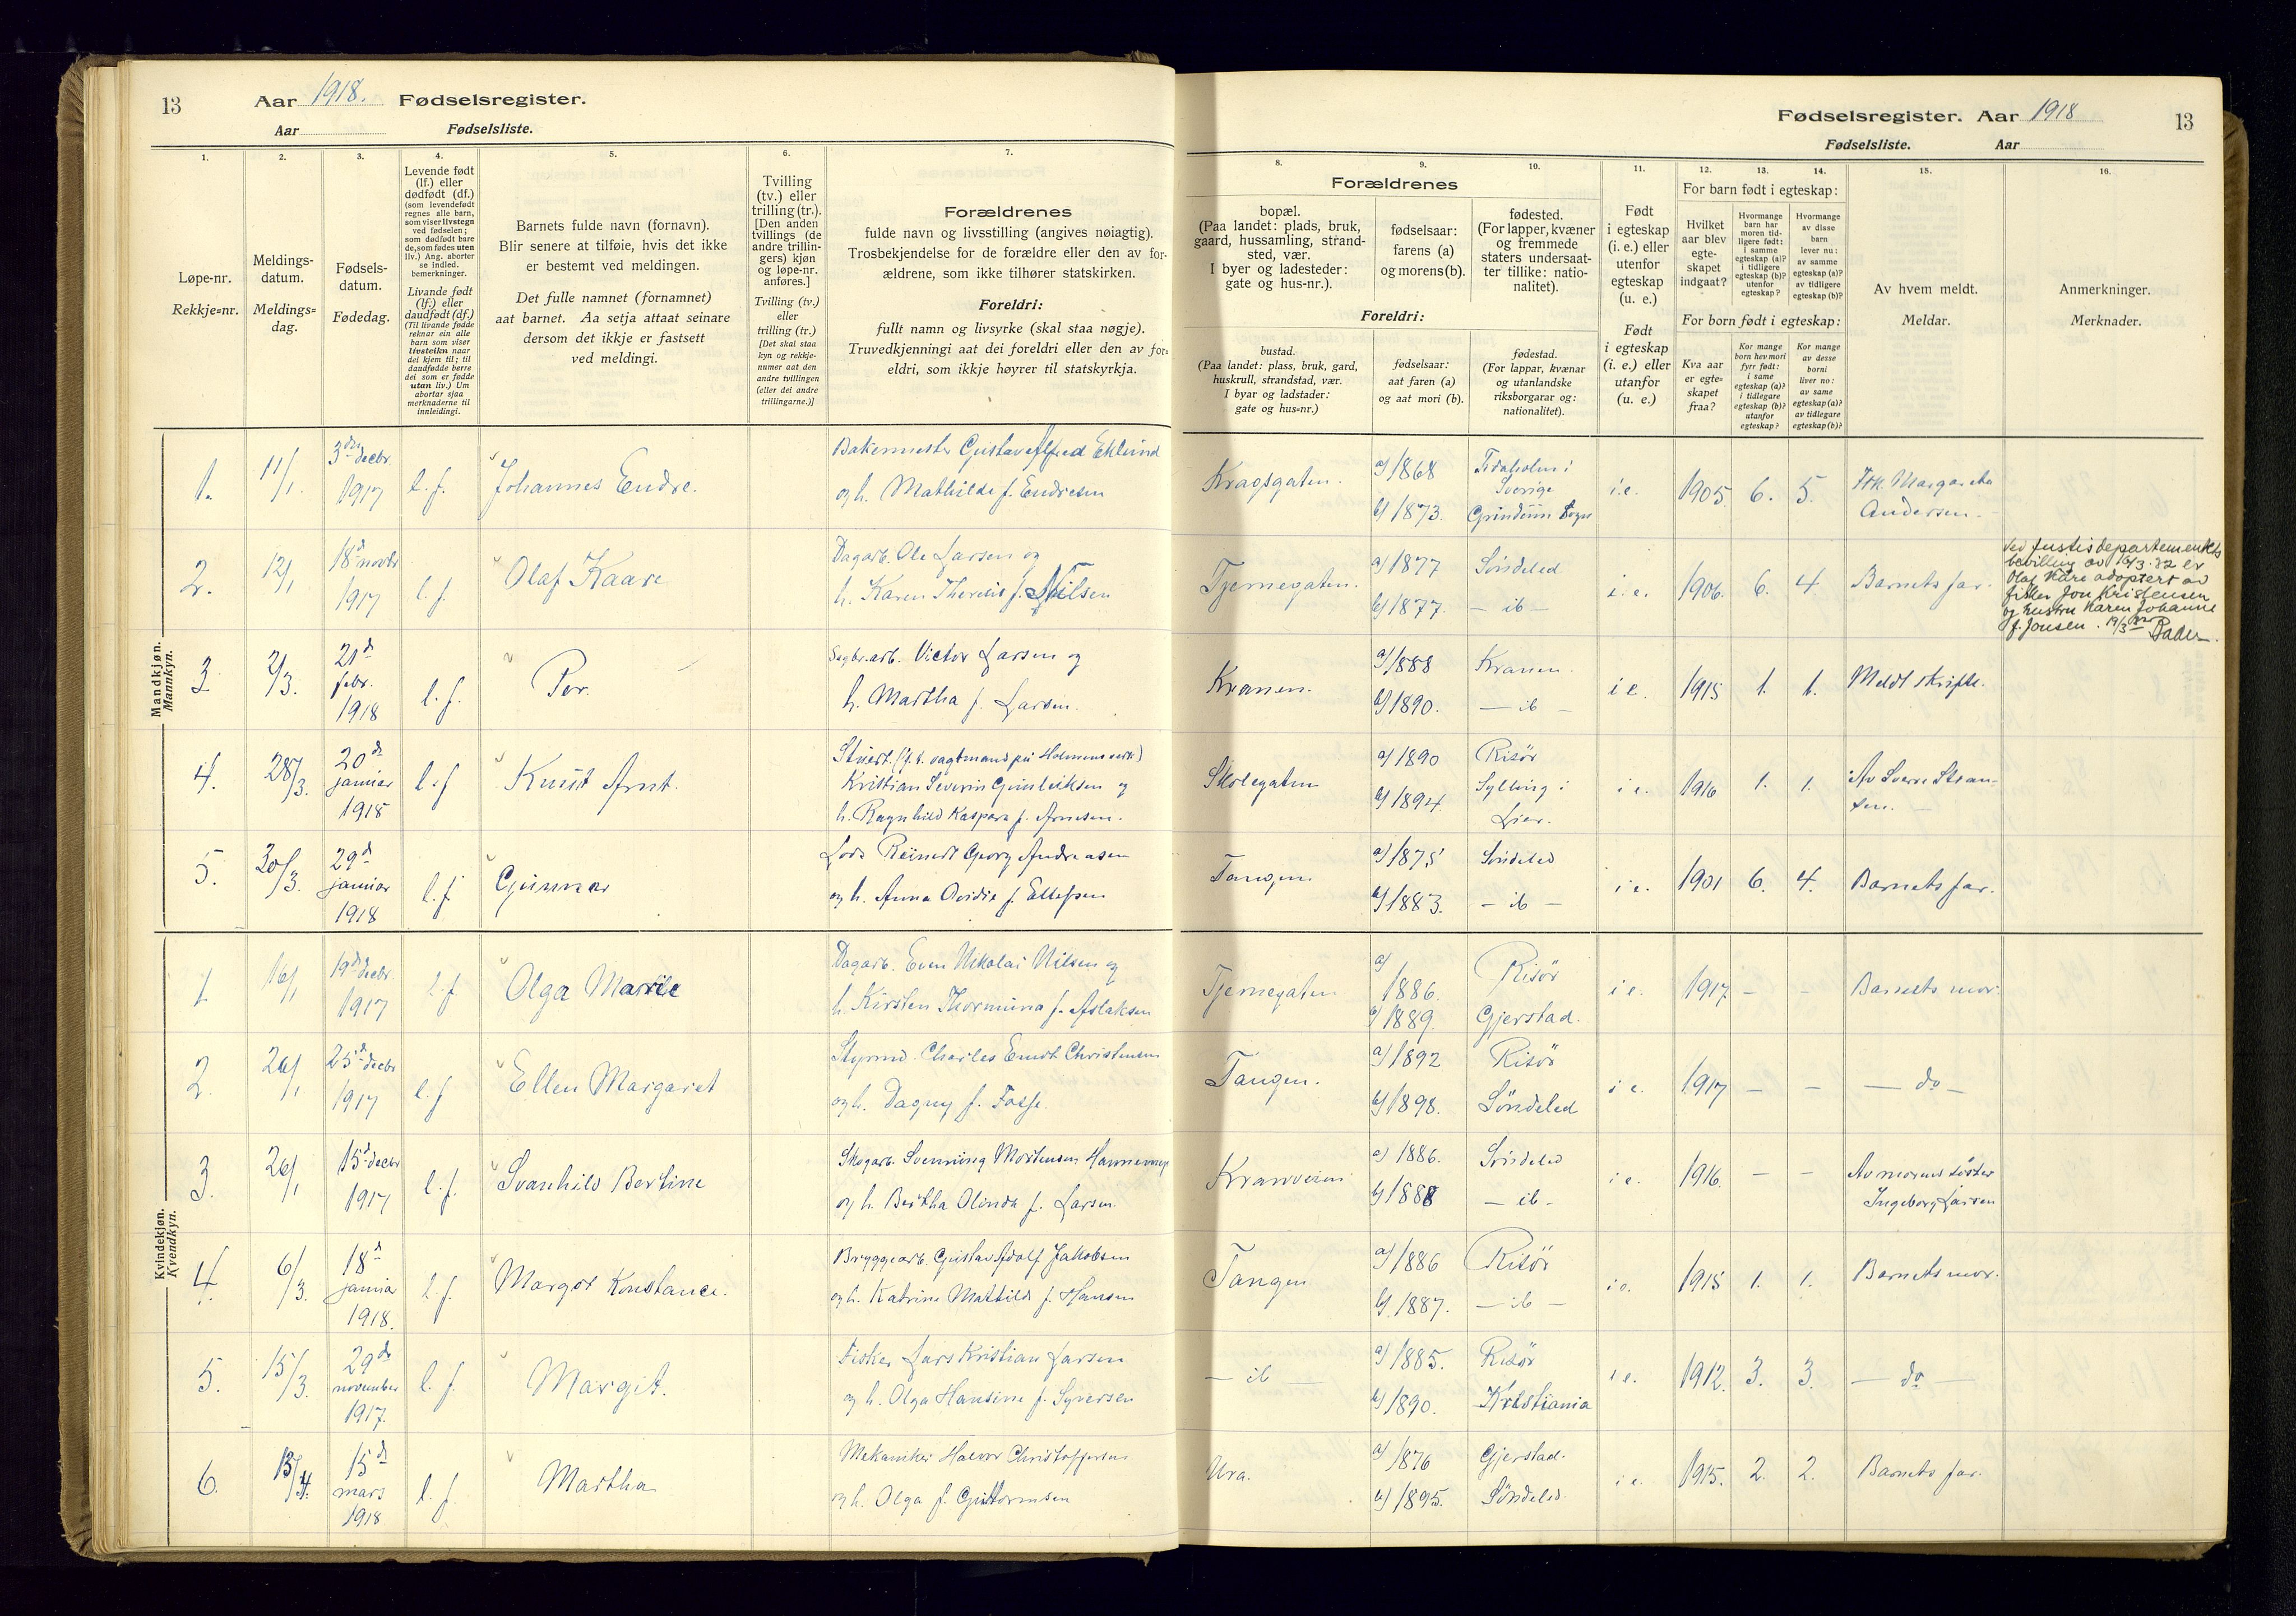 13
Aar 1918. Fødselsregister.
Aar Fødselsliste.
1.
Løpe-nr.
Rekkje=nr.
2.
Meldings-
datum.
Meldings=
dag.
3.
Fødsels-
datum.
Fødedag.
4.
Levende født
(lf.) eller
dødfødt (df.)
(som levendefødt
regnes alle barn,
som viser livstegn
ved fødselen;
som dødfødt bare
de, som fødes uten
liv.) Ang. aborter
se indled.
bemerkninger.
Livande født
(lf.) eller
daudfødt (df.)
(Til livande fødde
reknar ein alle
barn som viser
livsteikn naar
dei kjem til; til
daudfødde berre
dei som er fødde
utan liv.) Um
abortar sjaa
merknaderne til
innleidingi.
5.
Barnets fulde navn (fornavn).
Blir senere at tilføie, hvis det ikke
er bestemt ved meldingen.
Det fulle namnet (fornamnet)
aat barnet. Aa setja attaat seinare
dersom det ikkje er fastsett
ved meldingi.
6.
Tvilling
(tv.) eller
trilling (tr.).
[Den anden
tvillings (de
andre trillin-
gers) kjøn
og løpe-nr.
anføres.]
Tvilling (tv.)
eller
trilling (tr.)
[Det skal staa
kyn og rekkje-
numer aat den
andre tvillingen
(eller dei andre
trillingarne.)]
7.
Forældrenes
fulde navn og livsstilling (angives nøiagtig).
Trosbekjendelse for de forældre eller den av for-
ældrene, som ikke tilhører statskirken.
Foreldri:
fullt namn og livsyrke (skal staa nøgje).
Truvedkjenningi aat dei foreldri eller den av for-
eldri, som ikkje høyrer til statskyrkja.
Mandkjøn.
Mannkyn.
1. 11/1. 3die decbr. 1917 l. f. Johannes Endre.
Bakermester Gustav Alfred Eklund
og h. Mathilde f. Endresen
2. 12/1 18d novbr 1917 l. f. Olaf Kaare
Dagarb. Ole Larsen og
h. Karen Theresie f. Nilsen
3 2/3. 21d febr. 1918 l. f. Per.
Sagbr.arb. Victor Larsen og
h. Martha f. Larsen.
4. 28/3. 20de januar 1918 l. f Knut Arnt.
Stuert. (f. t. vagtmand på Holmens verk)
Kristian Severin Gunleiksen og
h. Ragnhild Kaspara f. Arnesen.
5. 30/3. 29d januar 1918 l. f Gunnar
Lods Reinert Georg Andreasen
og h. Anna Ovidie f. Ellefsen
Kvindekjøn.
Kvendkyn.
1 16/1 19de decbr. 1917 l. f Olga Marie
Dagarb. Even Nikolai Nilsen og
h. Kirsten Thormina f. Aslaksen
2. 26/1 25d decbr 1917 l. f Ellen Margaret
Styrmd. Charles Emil Christensen
og h. Dagny f. Fosse.
3. 26/1 15d decbr 1917 l. f. Svanhild Bertine
Skogarb. Svenning Mortensen
og h. Bertha Olinda f. Larsen.
4. 6/3. 18d januar 1918. l. f. Margot Konstance.
Bryggearb. Gustav Adolf Jakobsen
og h. Katrine Mathilde f. Hansen
5. 15/3. 29de november 1917. l. f. Margit.
Fisker Lars Kristian Larsen
og h. Olga Hansine f. Syversen
6. 15de mars 1918 l. f. Martha
Mekaniker Halvor Christoffersen
og h. Olga f. Guttormsen
Fødselsregister. Aar 1918
13
Fødselsliste. Aar
8.
Forældrenes
bopæl.
(Paa landet: plads, bruk,
gaard, hussamling, strand-
sted, vær.
I byer og ladesteder:
gate og hus-nr.).
Foreldri:
bustad.
(Paa landet: plass, bruk, gard,
huskrull, strandstad, vær.
I byar og ladstader:
gate og hus=nr.)
9.
fødselsaar:
farens (a)
og morens (b).
fødselsaar:
aat faren (a)
og aat mori (b).
10.
fødested.
(For lapper, kvæner
og fremmede
staters undersaat-
ter tillike: natio-
nalitet).
fødestad.
(For lappar, kvænar
og utanlandske
riksborgarar og:
nationalitet).
11.
Født
i egteskap
(i. e.) eller
utenfor
egteskap
(u. e.)
Født
i egteskap
(i. e.) eller
utanfor
(u. e.)
12. 13. 14.
For barn født i egteskap:
Hvilket
aar blev
egte-
skapet
indgaat?
Hvormange
barn har
moren tid-
ligere født:
i samme
egteskap (a)?
i tidligere
egteskap (b)?
utenfor
egteskap?
Hvormange
av disse
barn
lever nu:
av samme
egteskap (a)?
av tidligere
egteskap (b)?
For born født i egteskap:
Kva aar
er egte=
skapet
fraa?
Kor mange
born hev mori
fyrr født:
i same
egteskap (a)?
i tidlegare
egteskap (b)?
utanfor
egteskap?
Kor mange
av desse
borni
liver no:
av same
egteskap (a)?
av tidlegare
egteskap (b)?
15.
Av hvem meldt.
Meldar.
16.
Anmerkninger.
Merknader.
Kragsgaten. a) 1868 Tidaholm i Sverige
b) 1873. i. e. 1905. 6. 5. Frk. Margareta Andersen.
Tjernegaten. a) 1877 Søndeled
b) 1877. — ib — i. e. 1906. 6. 4. Barnets far.
Ved Justisdepartementets
bevilling av 16/3. 32 er
Olaf Kåre adoptert av
fisker Jon Kristensen
og hustru Karen Johanne
f. Jonsen.
Kranen. a) 1888 Kranen
b) 1890. — ib — i e. 1915 1. 1. Meldt skriftl.
Skolegaten a) 1890 Risör
b) 1894. Sylling i Lier. i e. 1916 1. 1. Av Sverre
Tangen a) 1875 Søndeled
b) 1883. — ib — i e. 1901 6. 4. Barnets far.
Tjernegaten a) 1886. Risör
b) 1889. Gjerstad. i e. 1917 — — Barnets mor.
Tangen. a) 1892 Risör
b) 1898. Söndeled i e. 1917 — — — do —
Kranveien a) 1886. Søndeled
b) 1888 — ib — i e. 1916. — — Av morens søster
Ingeborg Larsen
Tangen a) 1886 Risör
b) 1887. — ib — i e. 1915 1. 1. Barnets mor.
— ib — a) 1885. Risör
b) 1890. Kristiania i e. 1912. 3. 3. — do —
Ura. a) 1876 Gjerstad.
b) 1895. Söndeled. i e. 1915. 2. 2. Barnets far.